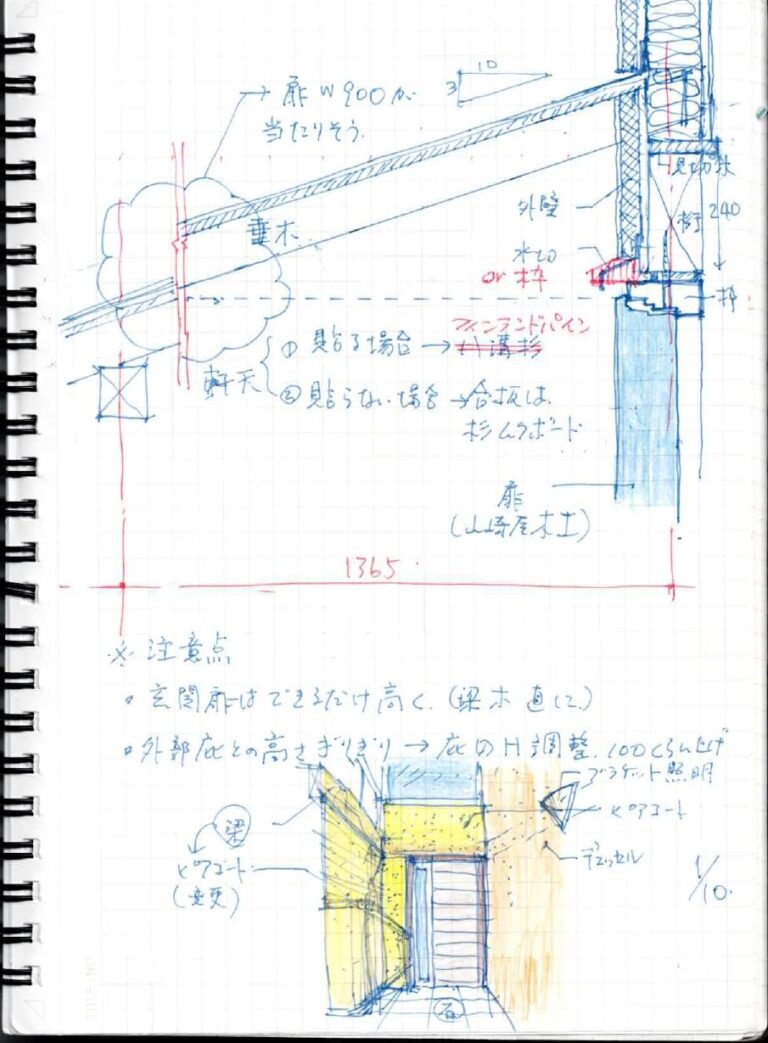 扉W900が
当たりそう
10
3
垂木
外壁
見切
240
桁
水切
or 枠
枠
フィンランドパイン
軒天
① 貼る場合 → 八溝杉
② 貼らない場合 → 合板は
杉ムクボード
扉
(山崎屋木工)
1365
※ 注意点
・玄関扉はできるだけ高く。(梁木 直に)
・外部庇との高さぎりぎり → 庇のH調整。100くらい上げ
ブラケット照明
梁
ピアコート
ピアコート
(変更)
1/10.
石